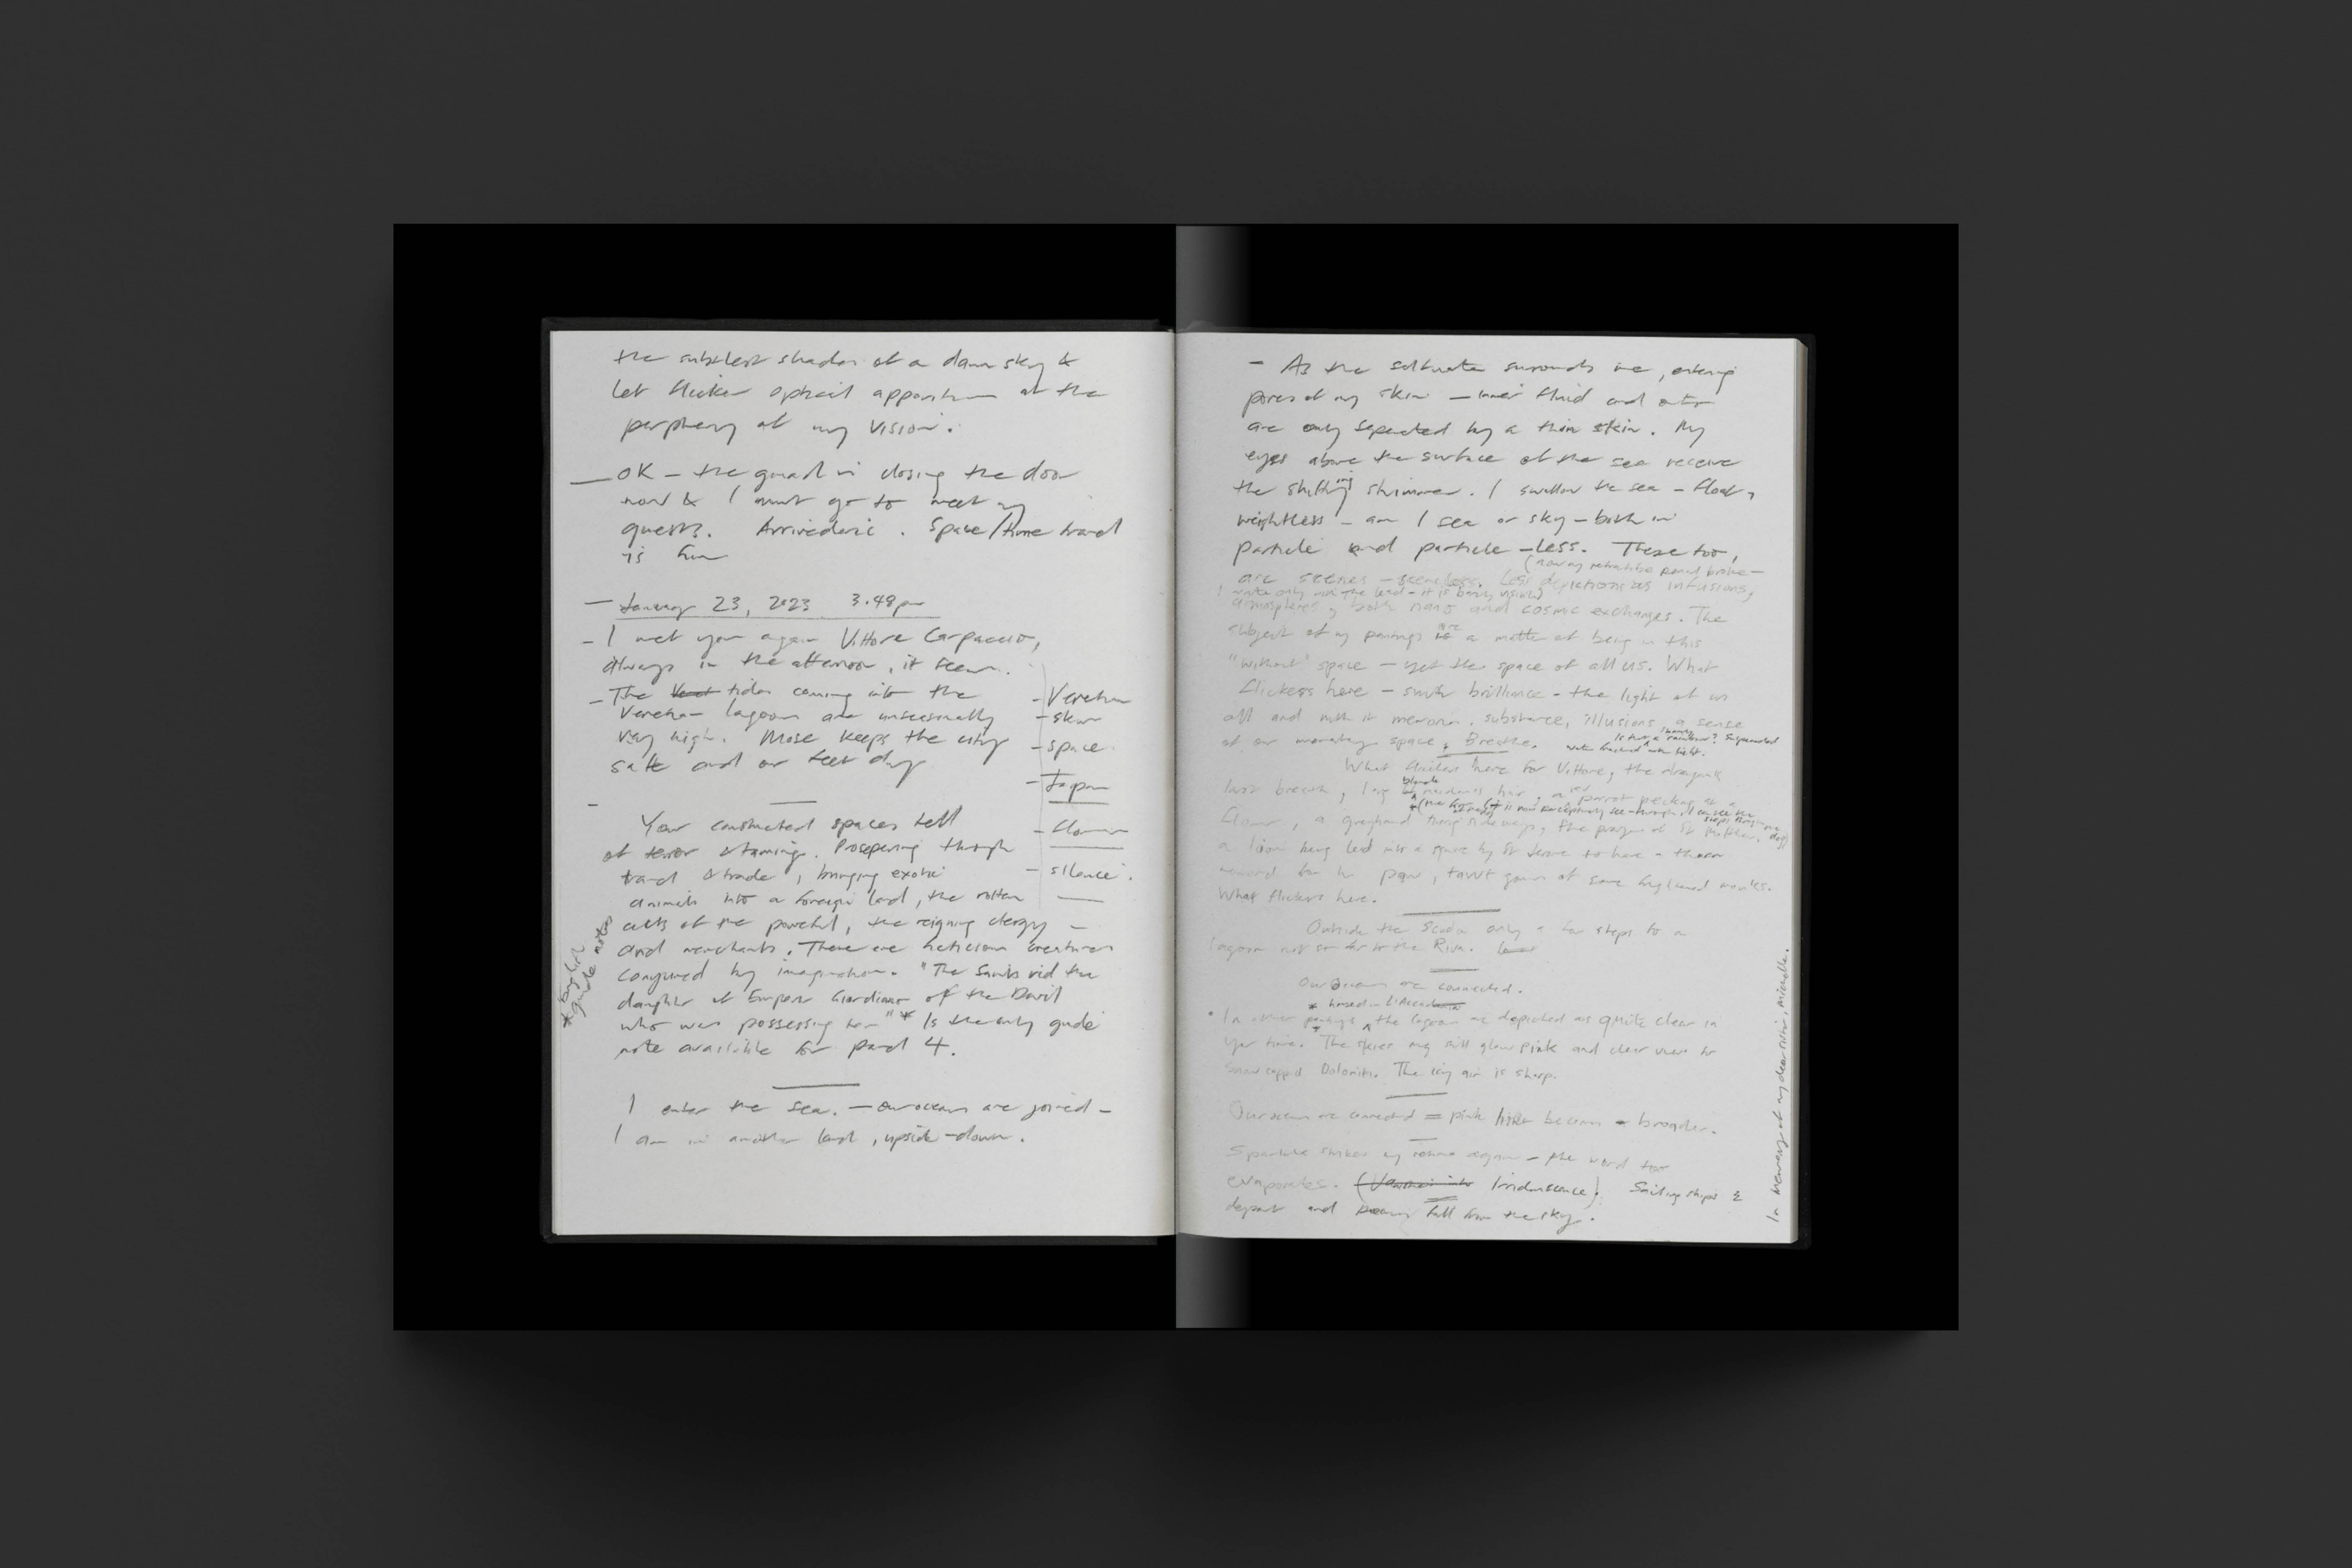 the subtlest shades of a dawn sky &
let flicker optical apparitions at the
periphery of my vision.
— OK – the guard is closing the door
now & I must go to meet my
guests. Arrivederci. Space/time travel
is fun
— January 23, 2023 3.49pm
- I met you again Vittore Carpaccio,
always in the afternoon, it seems.
- The tides coming into the
Venetian lagoon are unseasonally
very high. Mose keeps the city
safe and our feet dry
-
- Venetian
- skin
- space
- Japan
- flower
- silence.
Your constructed spaces tell
of terror & taming. Prospering through
travel & trade, bringing exotic
animals into a foreign land, the rotten
acts of the powerful, the reigning clergy –
and merchants. There are fictitious creatures
conjured by imagination. "The Saints rid the
daughter of Emperor Gordianus of the Devil
who was possessing her"* Is the only guide
note available for panel 4.
* English guide notes
I enter the sea. – Our oceans are joined –
I am in another land, upside-down.
- As the saltwater surrounds me, entering
pores of my skin – inner fluid and outer
are only separated by a thin skin. My
eyes above the surface of the sea receive
the shifting shimmer. I swallow the sea – float,
weightless – am I sea or sky – both in
particle and particle-less. These too,
(now my retractable pencil broke –
are scenes – sceneless. Less depictions as infusions,
I write only with the lead – it is barely visible)
atmospheres, both nano and cosmic exchanges. The
subject of my paintings are a matter of being in this
"without" space – yet the space of all us. What
flickers here – such brilliance – the light of us
all and with it memories, substance, illusions, a sense
of our momentary space. Breathe.
Is this a rainbow? Suspended
water touched with light.
What flickers here for Vittore, the dragon's
last breath, long blonde hair, a red parrot pecking at a
flower, a greyhound sideways, the prayer of St
a lion being led into a square by St Jerome to have a thorn
removed from his paw, taunt gowns of some frightened monks.
What flickers here.
Outside the Scuola only a few steps to a
lagoon not so far to the Riva.
Our Oceans are connected.
* housed in L'Accademia
• In other paintings* the lagoon are depicted as quite clear in
your time. The skies may still glow pink and clear views to
snow capped Dolomites. The icy air is sharp.
Our oceans are connected = pink light becomes broader.
Sparkle strikes my retina again – the word too
evaporates. (Iridescence). Sailing ships
depart and fall from the sky.
In memory of my dear sister, Michelle.